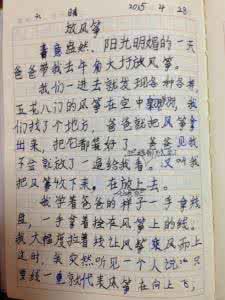 六 晴 2015 4 28
放风筝
春意盎然、阳光明媚的一天
爸爸带我去午台大圩放风筝。
我们一进去就发现各种各样,
五花八门的风筝在空中飘荡。我
们找了个地方,爸爸就把风筝拿
出来,把它都装好了。爸爸见我
不会就放了一遍给我看。又叫我
把风筝收下来,在放上去。
我学着爸爸的样子一手拿线
盘,一手拿拴在风筝上的线。
我大幅度拉着线让风筝乘风而上
这时,我突然听见一个人说:“只
要线一重就代表风筝在向上飞,